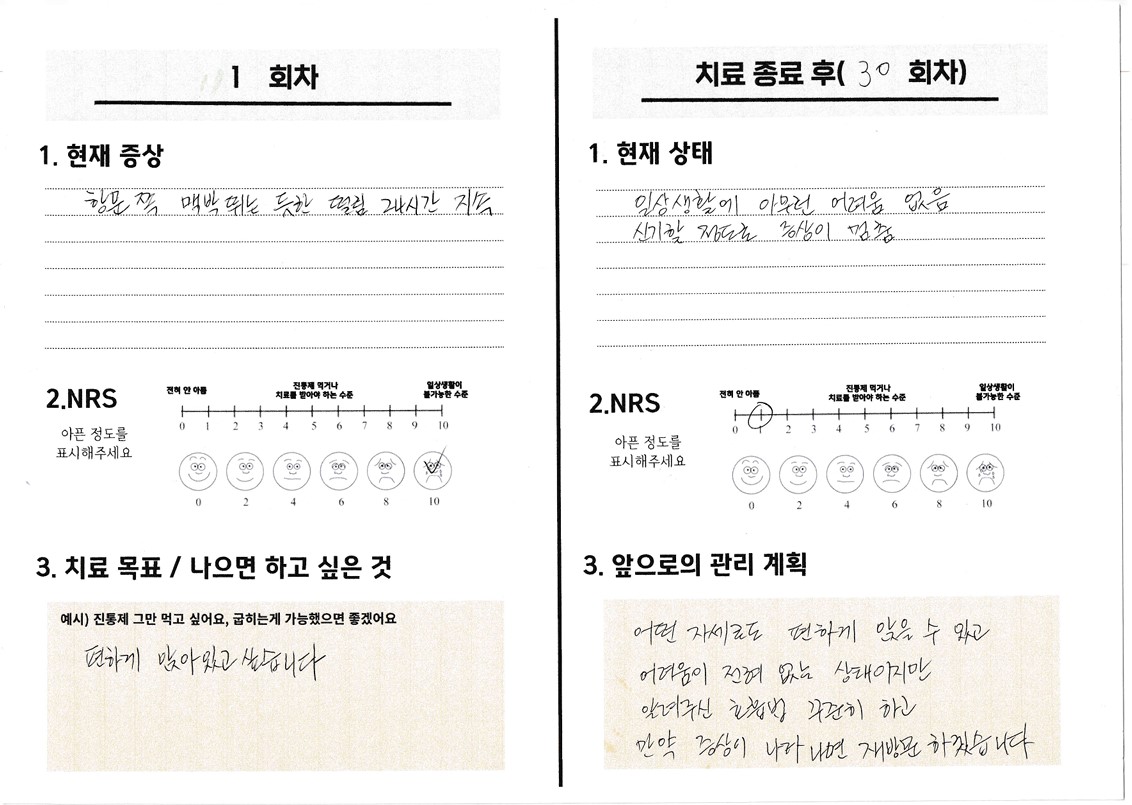 1 회차
1. 현재 증상
항문 쪽 맥박 뛰는 듯한 떨림 24시간 지속
2.NRS
아픈 정도를
표시해주세요
전혀 안 아픔
진통제 먹거나
치료를 받아야 하는 수준
일상생활이
불가능한 수준
0 1 2 3 4 5 6 7 8 9 10
0 2 4 6 8 10
3. 치료 목표 / 나으면 하고 싶은 것
예시) 진통제 그만 먹고 싶어요, 굽히는게 가능했으면 좋겠어요
편하게 앉아있고 싶습니다
치료 종료 후( 30 회차)
1. 현재 상태
일상생활에 아무런 어려움 없음
신기할 정도로 증상이 멈춤
2.NRS
아픈 정도를
표시해주세요
전혀 안 아픔
진통제 먹거나
치료를 받아야 하는 수준
일상생활이
불가능한 수준
0 1 2 3 4 5 6 7 8 9 10
0 2 4 6 8 10
3. 앞으로의 관리 계획
어떤 자세로도 편하게 앉을 수 있고
어려움이 전혀 없는 상태이지만
알려주신 호흡법 꾸준히 하고
만약 증상이 나타나면 재방문 하겠습니다